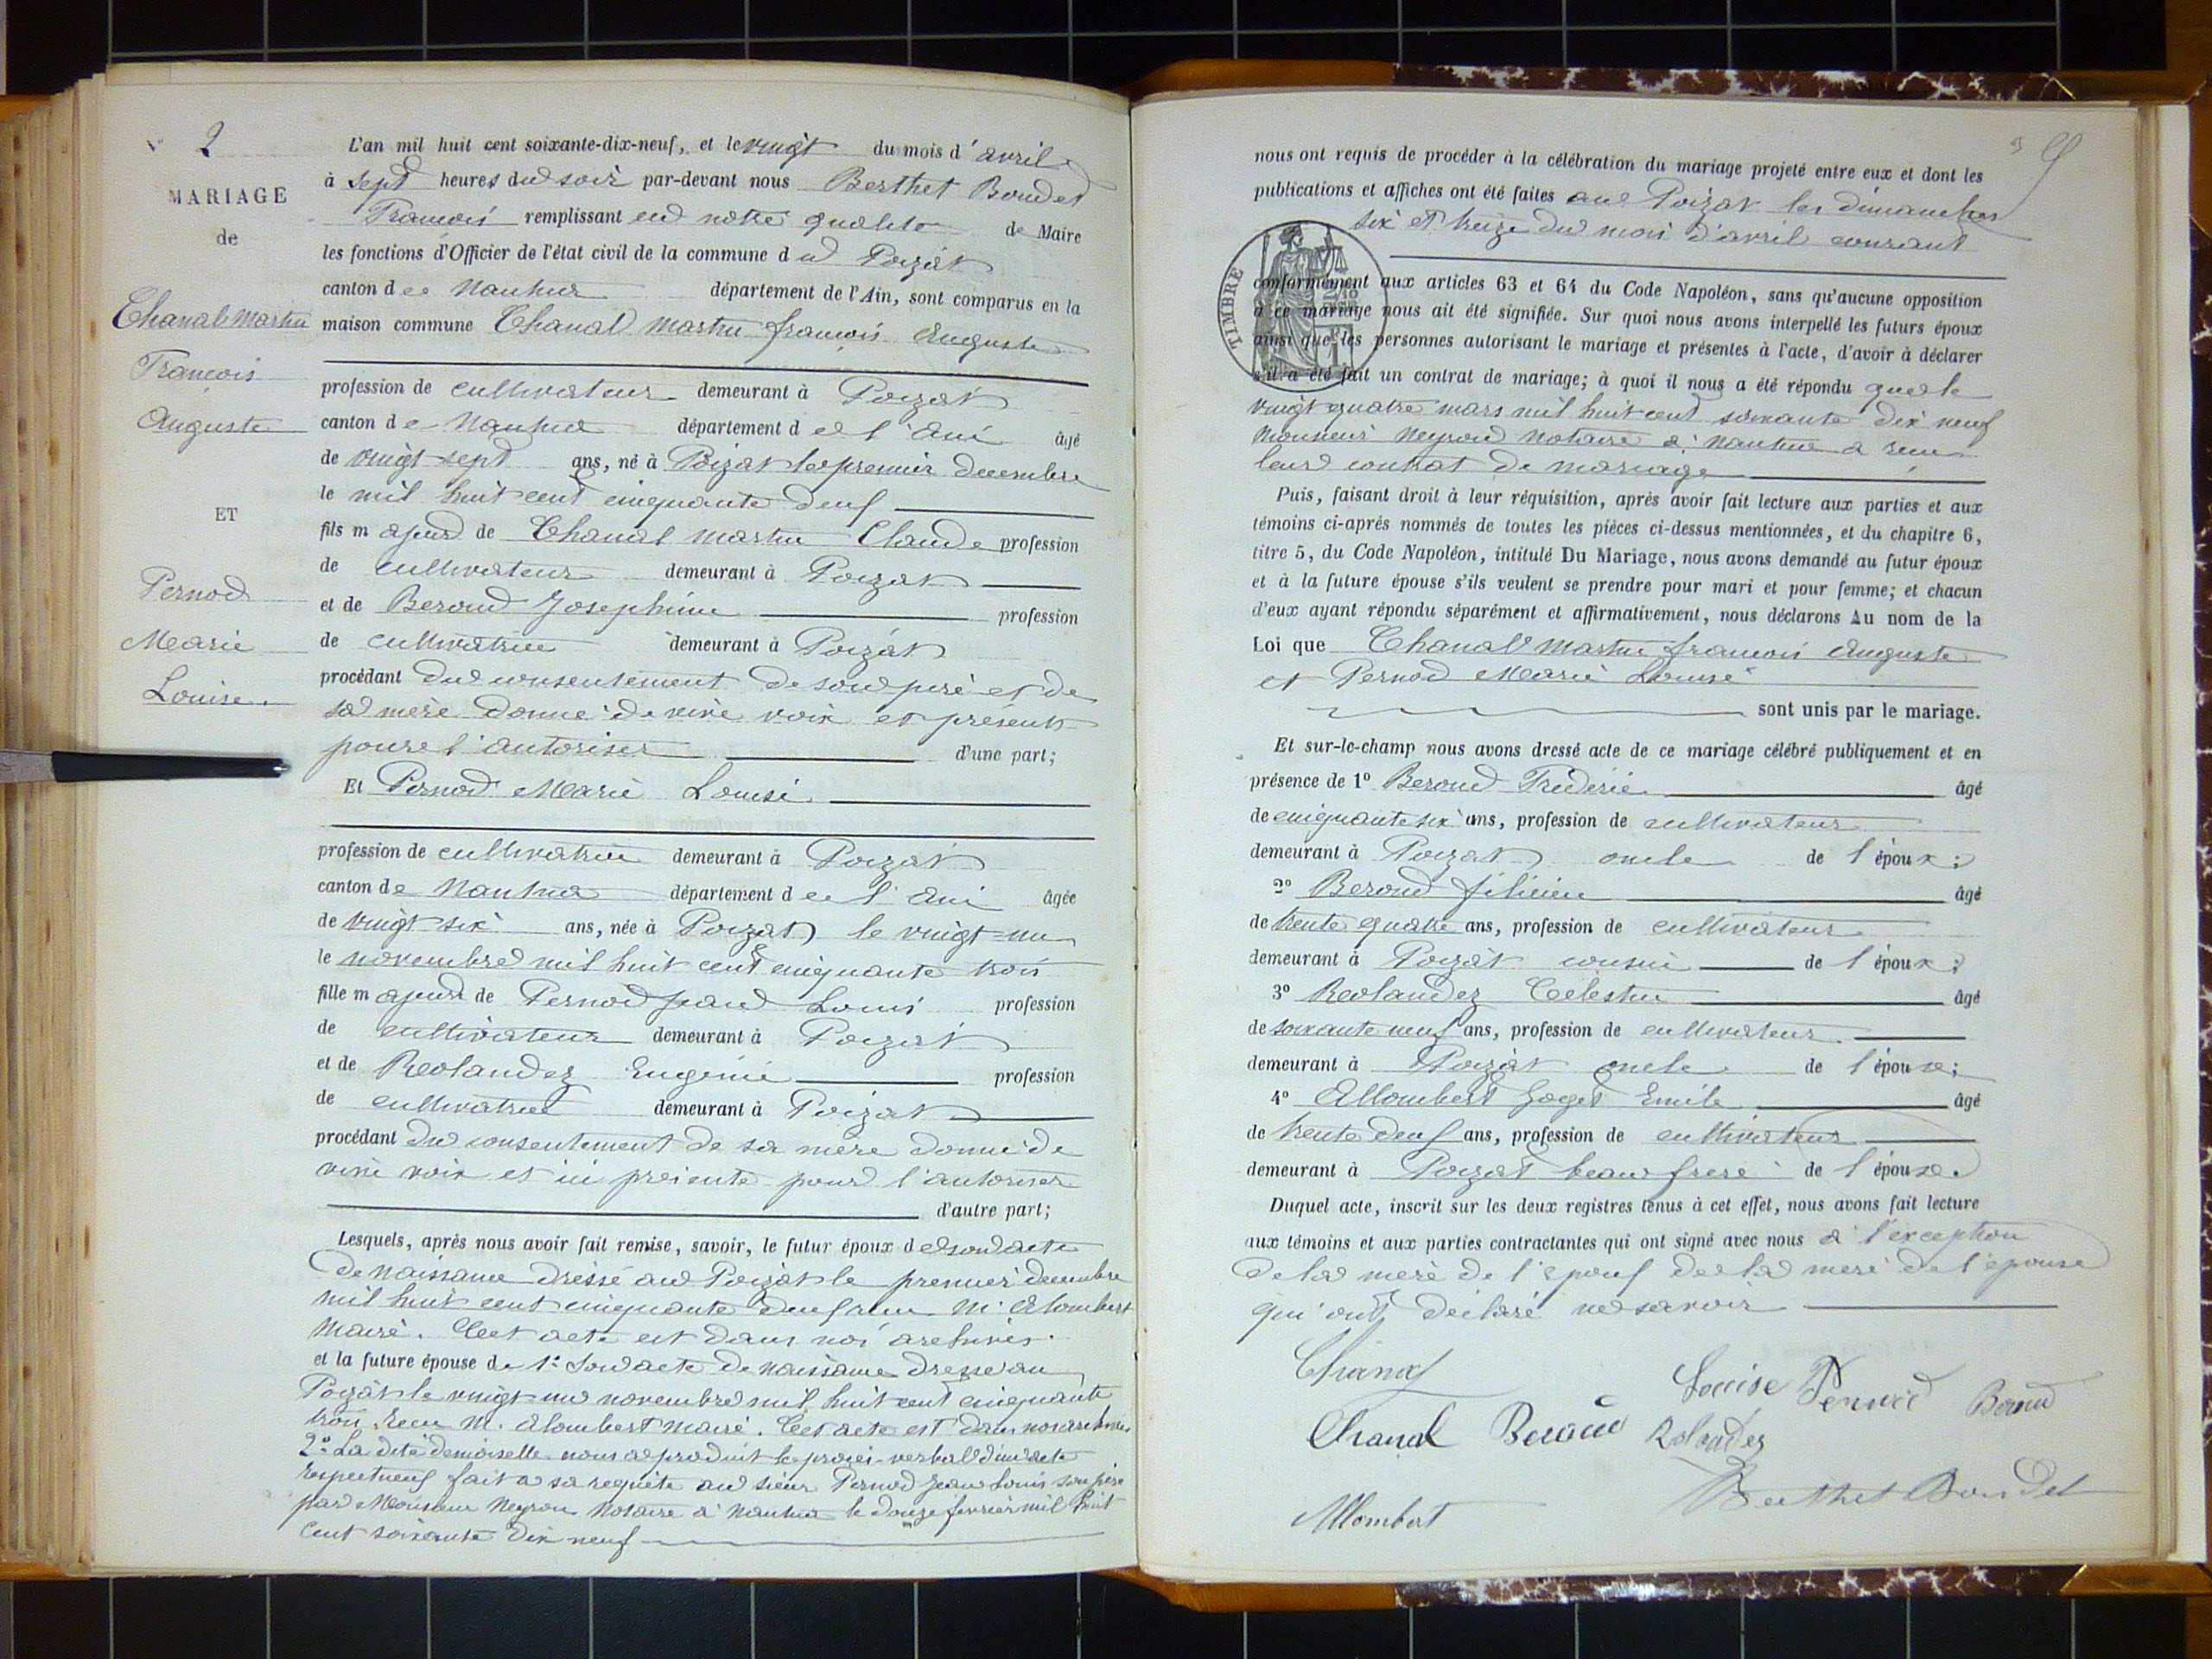 N° 2
MARIAGE
de
Chanal Martin
François
Auguste
ET
Pernod
Marie
Louise.
L'an mil huit cent soixante-dix-neuf, et le vingt du mois d'avril
à sept heures du soir par-devant nous Berthet Bondet
François remplissant en notre qualité de Maire
les fonctions d'Officier de l'état civil de la commune du Poizat
canton de Nantua département de l'Ain, sont comparus en la
maison commune Chanal Martin françois Auguste
profession de cultivateur demeurant à Poizat
canton de Nantua département de l'Ain âgé
de vingt sept ans, né à Poizat le premier decembre
le mil huit cent cinquante deux
fils majeur de Chanal Martin Claude profession
de cultivateur demeurant à Poizat
et de Beroud Josephine profession
de cultivatrice demeurant à Poizat
procédant du consentement de son père et de
sa mere donné de vive voix et présents
pour l'autoriser d'une part;
Et Pernod Marie Louise
profession de cultivatrice demeurant à Poizat
canton de Nantua département de l'Ain âgée
de vingt six ans, née à Poizat le vingt un
le novembre mil huit cent cinquante trois
fille majeure de Pernod Jean Louis profession
de cultivateur demeurant à Poizat
et de Reolandez Eugénie profession
de cultivatrice demeurant à Poizat
procédant du consentement de sa mère donné de
vive voix et ici présente pour l'autoriser
d'autre part;
Lesquels, après nous avoir fait remise, savoir, le futur époux de son acte
de naissance dressé au Poizat le premier decembre
mil huit cent cinquante deux M. Alombert
Maire. Cet acte est dans nos archives.
et la future épouse de 1° son acte de naissance dressé au
Poizat le vingt un novembre mil huit cent cinquante
trois M. Alombert maire. Cet acte est dans nos archives
2° La dite demoiselle nous a produit le procès-verbal d'un acte
respectueux fait a sa requête au sieur Pernod Jean Louis son père
par Monsieur Neyron Notaire à Nantua le douze fevrier mil huit
cent soixante dix neuf
nous ont requis de procéder à la célébration du mariage projeté entre eux et dont les
publications et affiches ont été faites au Poizat les dimanches
six et treize du mois d'avril courant
TIMBRE
conformément aux articles 63 et 64 du Code Napoléon, sans qu'aucune opposition
à ce mariage nous ait été signifiée. Sur quoi nous avons interpellé les futurs époux
ainsi que les personnes autorisant le mariage et présentes à l'acte, d'avoir à déclarer
s'il a été fait un contrat de mariage; à quoi il nous a été répondu que le
vingt quatre mars mil huit cent soixante dix neuf
Monsieur Neyron Notaire à Nantua a recu
leur contrat de mariage
Puis, faisant droit à leur réquisition, après avoir fait lecture aux parties et aux
témoins ci-après nommés de toutes les pièces ci-dessus mentionnées, et du chapitre 6,
titre 5, du Code Napoléon, intitulé Du Mariage, nous avons demandé au futur époux
et à la future épouse s'ils veulent se prendre pour mari et pour femme; et chacun
d'eux ayant répondu séparément et affirmativement, nous déclarons Au nom de la
Loi que Chanal Martin françois Auguste
et Pernod Marie Louise
sont unis par le mariage.
Et sur-le-champ nous avons dressé acte de ce mariage célébré publiquement et en
présence de 1° Beroud Frederic âgé
de cinquante six ans, profession de cultivateur
demeurant à Poizat oncle de l'époux;
2° Beroud félicien âgé
de trente quatre ans, profession de cultivateur
demeurant à Poizat cousin de l'époux;
3° Reolandez Célestin âgé
de soixante neuf ans, profession de cultivateur
demeurant à Poizat oncle de l'épouse;
4° Allombert Goget Emile âgé
de trente deux ans, profession de cultivateur
demeurant à Poizat beau frere de l'épouse.
Duquel acte, inscrit sur les deux registres tenus à cet effet, nous avons fait lecture
aux témoins et aux parties contractantes qui ont signé avec nous à l'exception
de la mère de l'époux de la mère de l'épouse
qui ont déclaré ne savoir
Chanal
Louise Pernod Beroud
Chanal Beroud Rolandez
Berthet Bondet
Allombert